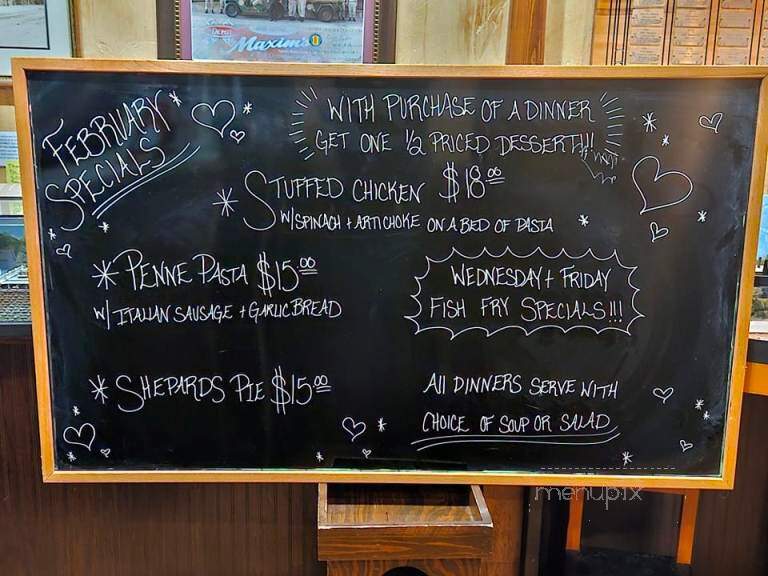 Maxim's
FEBRUARY
SPECIALS
WITH PURCHASE OF A DINNER
GET ONE 1/2 PRICED DESSERT!!!
* STUFFED CHICKEN $18.00
W/SPINACH + ARTICHOKE ON A BED OF PASTA
* PENNE PASTA $15.00
W/ ITALIAN SAUSAGE + GARLIC BREAD
WEDNESDAY + FRIDAY
FISH FRY SPECIALS!!!
* SHEPARDS PIE $15.00
All DINNERS SERVE WITH
CHOICE OF SOUP OR SALAD
menupix